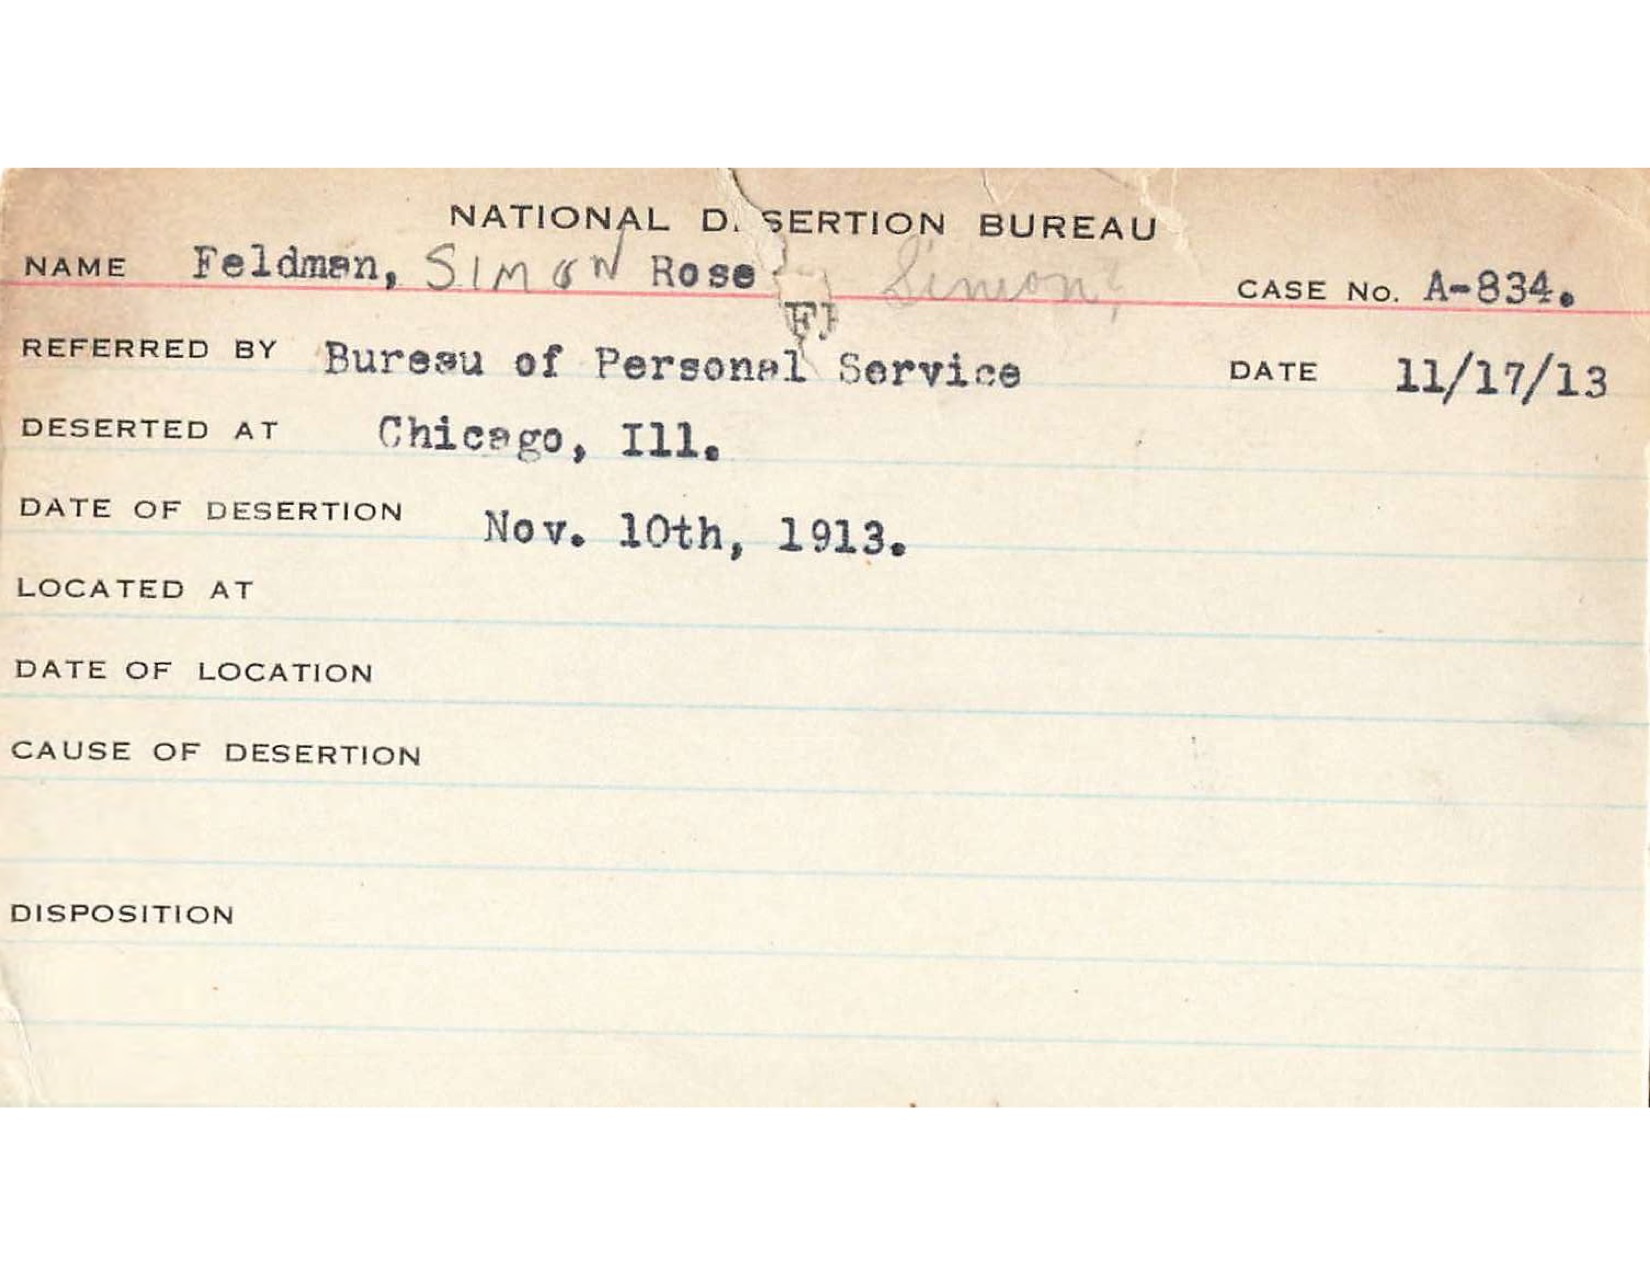 NATIONAL D. SERTION BUREAU
NAME Feldman, SIMON Rose Simon, CASE No. A-834.
F)
REFERRED BY Bureau of Personal Service DATE 11/17/13
DESERTED AT Chicago, Ill.
DATE OF DESERTION Nov. 10th, 1913.
LOCATED AT
DATE OF LOCATION
CAUSE OF DESERTION
DISPOSITION